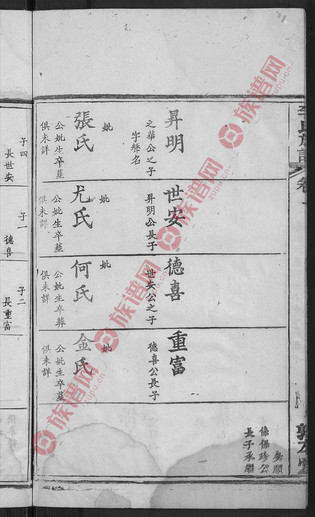 昇明
之華公之子
字縣名
妣
張氏
公妣生卒葬
俱未詳
世安
昇明公長子
妣
尤氏
公妣生卒葬
俱未詳
德喜
世安公之子
妣
何氏
公妣生卒葬
俱未詳
重富
德喜公長子
妣
金氏
公妣生卒葬
俱未詳
長子承繼
子四
長世安
子一
德喜
子二
長重富
族谱网
族谱网
族谱网
族谱网